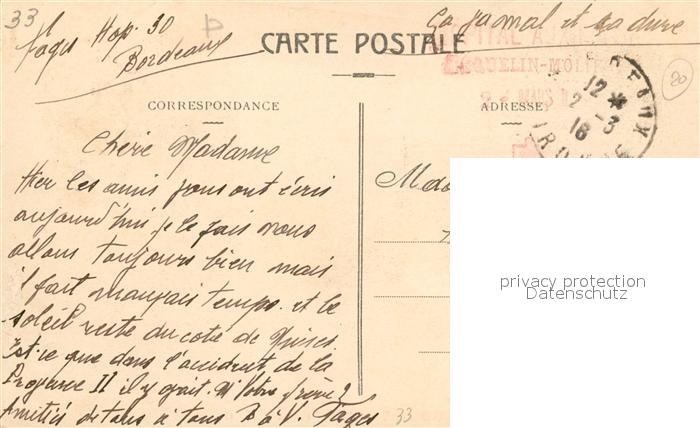 33
Fages Hop. 30
Bordeaux
Ça va mal et ça dure
CARTE POSTALE
20
CORRESPONDANCE
ADRESSE
12 *
2 - 3
18
Chère Madame
Hier les amis vous ont écris
aujourd'hui je le fais nous
allons toujours bien mais
il fait mauvais temps. et le
soleil reste du coté de
Est-ce que dans l'accident de la
Provence II il y avait Mr Votre frère?
Amitiés de tous à tous B à V. Fages
33
privacy protection
Datenschutz